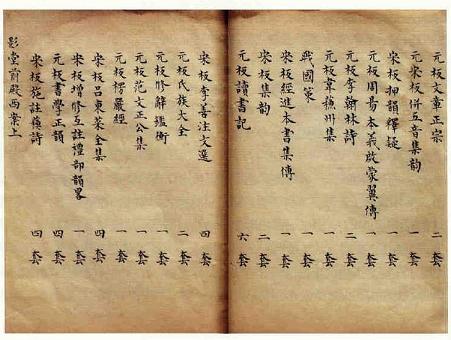 元板文章正宗 二套
元宋板併五音集韵 一套
宋板押韵釋疑 一套
元板周易本義啟蒙翼傳 一套
元板李翰林詩 二套
元板韋蘇州集 一套
戰國策 一套
宋板經進本書集傳 一套
宋板集韵 二套
元板讀書記 六套
宋板李善注文選 四套
元板氏族大全 二套
元板修辭鑑衡 一套
元板范文正公集 一套
元板楞嚴經 一套
宋板呂東萊全集 四套
宋板增修互註禮部韵畧 一套
元板書學正韵 四套
宋板施註蘇詩 四套
影堂前殿西案上